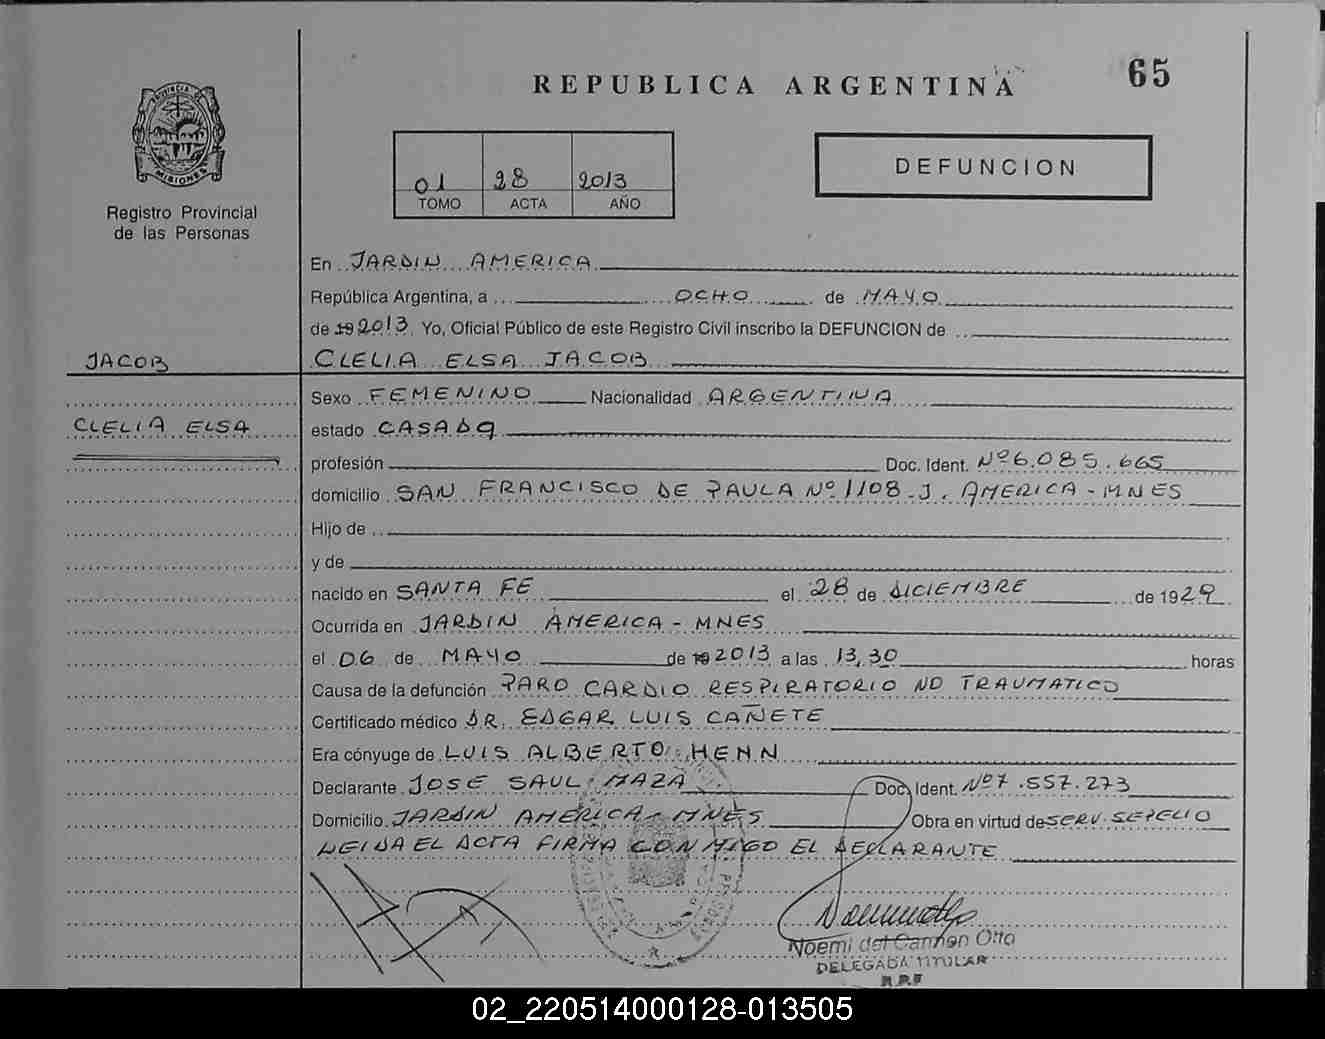 REPUBLICA ARGENTINA
65
PROVINCIA DE
MISIONES
Registro Provincial
de las Personas
01 28 2013
TOMO ACTA AÑO
DEFUNCION
En JARDIN AMERICA
República Argentina, a OCHO de MAYO
de 19 2013. Yo, Oficial Público de este Registro Civil inscribo la DEFUNCION de
JACOB
CLELIA ELSA JACOB
Sexo FEMENINO Nacionalidad ARGENTINA
CLELIA ELSA
estado CASADa
profesión Doc. Ident. Nº 6.085.665
domicilio SAN FRANCISCO DE PAULA Nº 1108 - J. AMERICA - MNES
Hijo de
y de
nacido en SANTA FE el 28 de DICIEMBRE de 1929
Ocurrida en JARDIN AMERICA - MNES
el 06 de MAYO de 19 2013 a las 13,30 horas
Causa de la defunción PARO CARDIO RESPIRATORIO NO TRAUMATICO
Certificado médico DR. EDGAR LUIS CAÑETE
Era cónyuge de LUIS ALBERTO HENN
Declarante JOSE SAUL MAZA Doc. Ident. Nº 7.557.273
Domicilio JARDIN AMERICA - MNES Obra en virtud de SERV. SEPELIO
LEIDA EL ACTA FIRMA CONMIGO EL DECLARANTE
Noemi del Carmen Otto
DELEGADA TITULAR
02_220514000128-013505